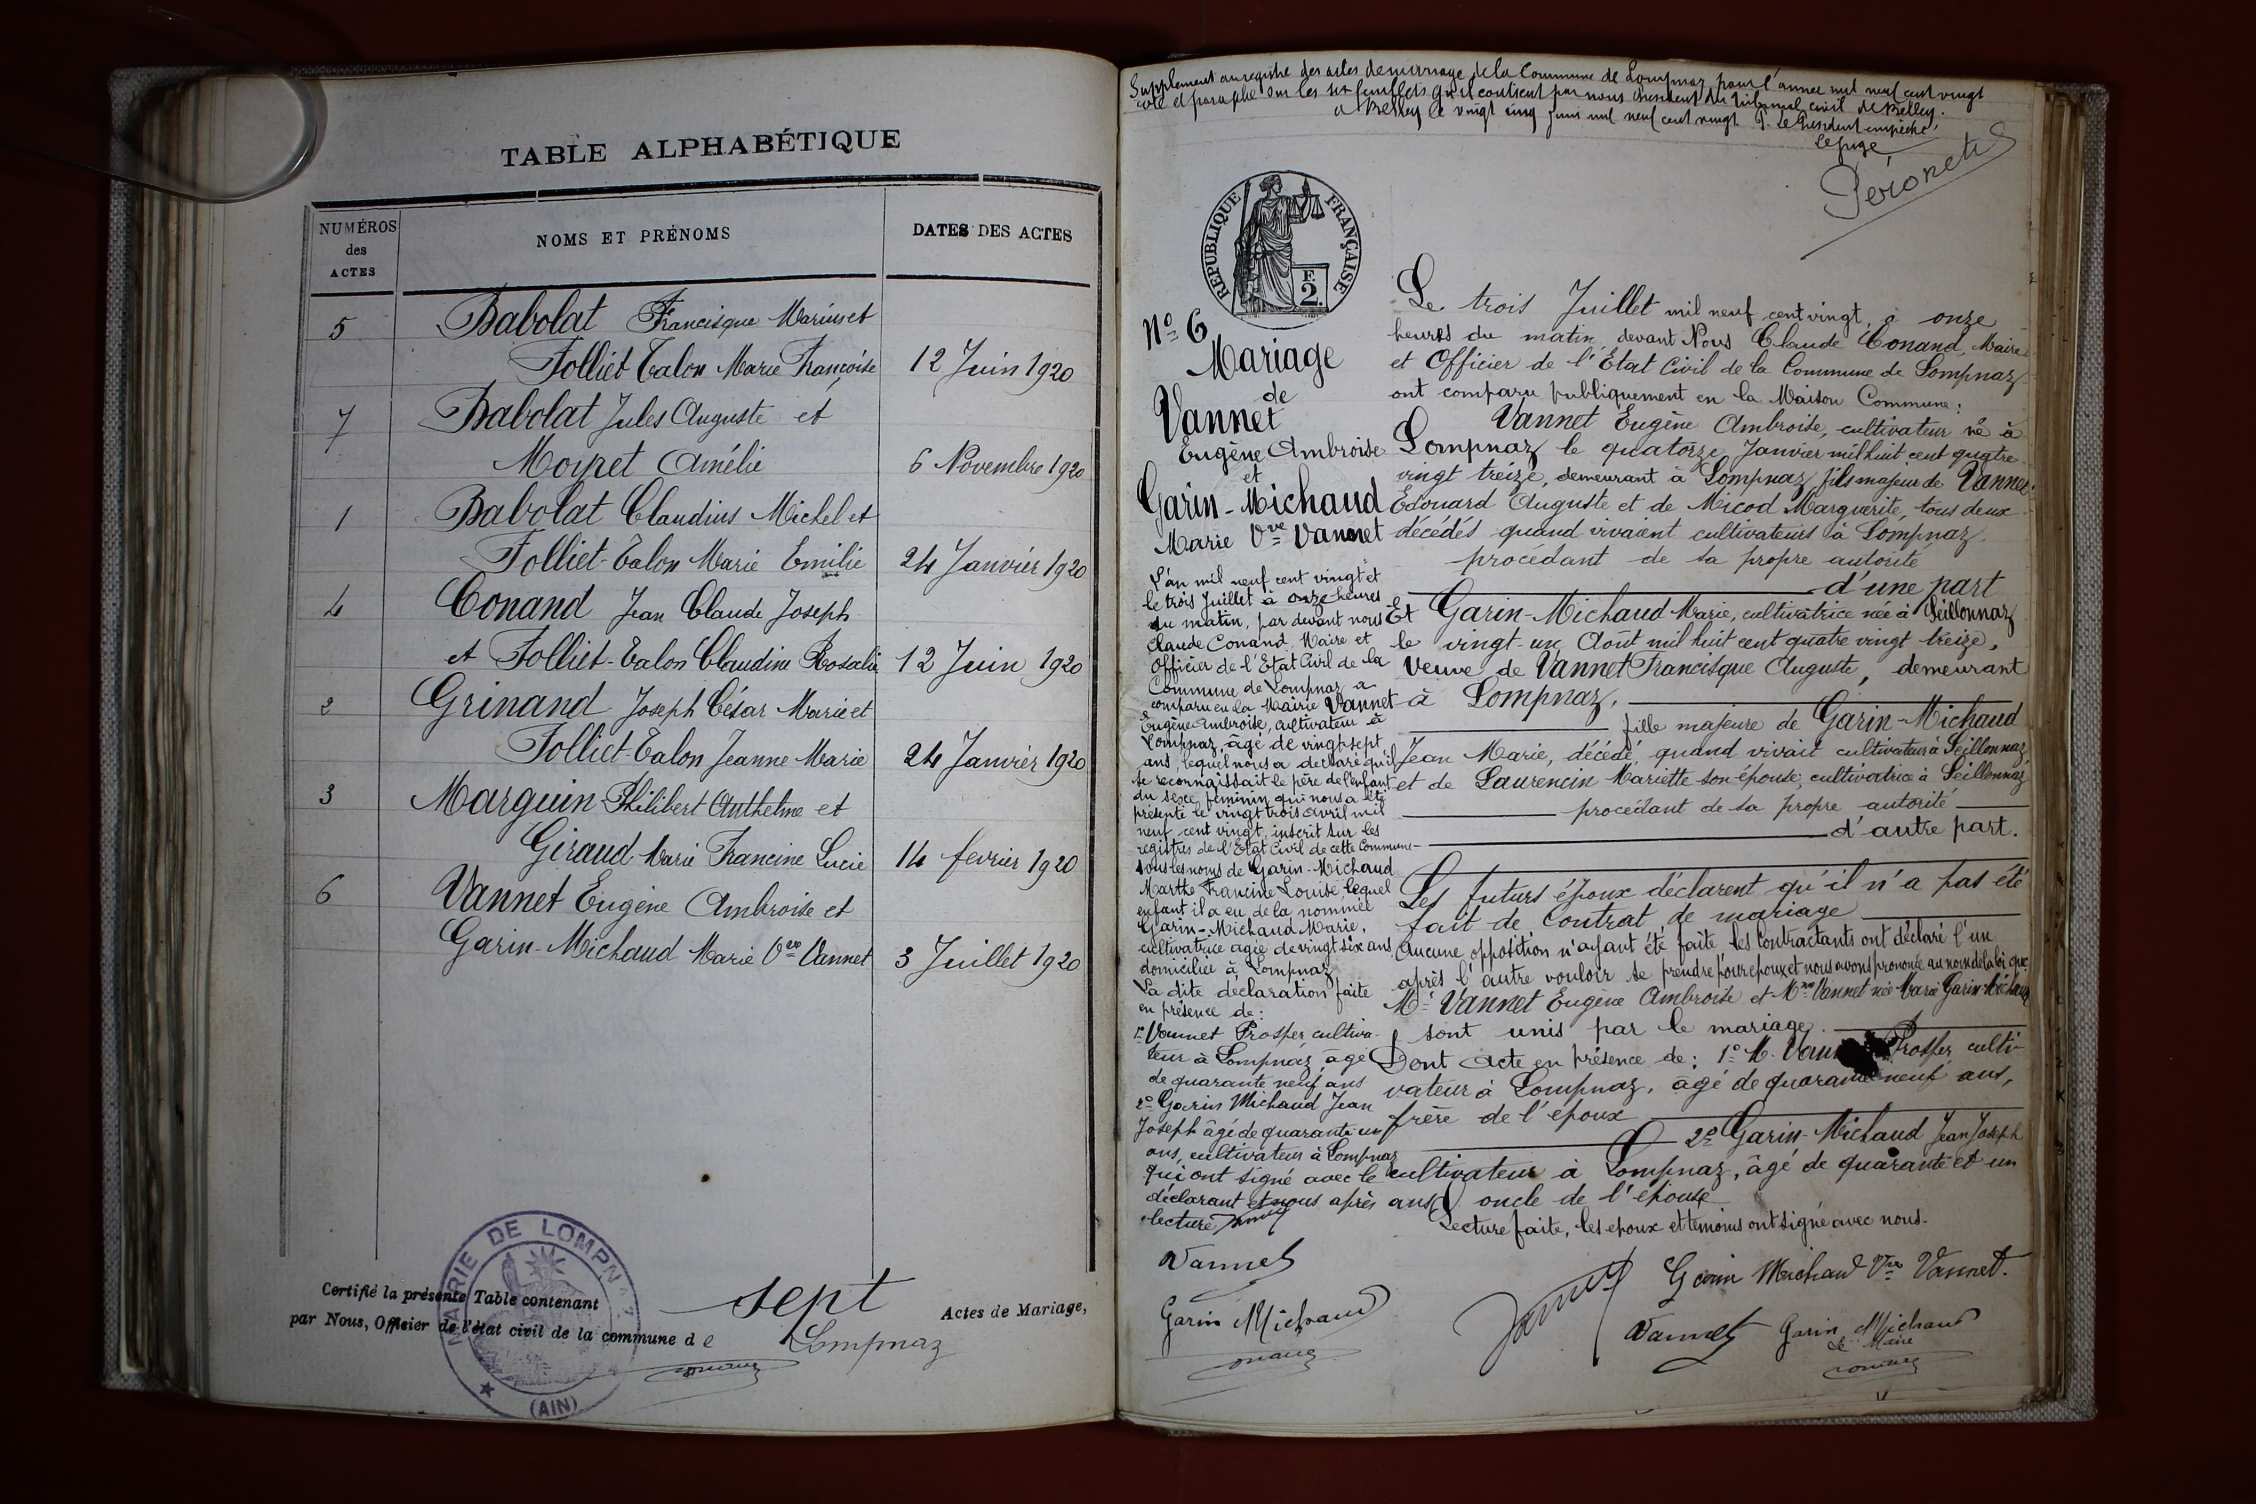 TABLE ALPHABÉTIQUE
NUMÉROS
des
ACTES
NOMS ET PRÉNOMS
DATES DES ACTES
5 Babolat Francisque Marius et
Folliet-Talon Marie Françoise 12 Juin 1920
7 Babolat Jules Auguste et
Moiret Amélie 6 Novembre 1920
1 Babolat Claudius Michel et
Folliet-Talon Marie Emilie 24 Janvier 1920
4 Conand Jean Claude Joseph
et Folliet-Talon Claudine Rosalie 12 Juin 1920
2 Grinand Joseph César Marie et
Folliet-Talon Jeanne Marie 24 Janvier 1920
3 Marguin Philibert Anthelme et
Giraud Marie Francine Lucie 14 fevrier 1920
6 Vannet Eugène Ambroise et
Garin-Michaud Marie Vve Vannet 3 Juillet 1920
Certifié la présente Table contenant sept Actes de Mariage,
par Nous, Officier de l'état civil de la commune de Lompnaz
MAIRIE DE LOMPNAZ
(AIN)
Supplement au registre des actes de mariage de la Commune de Lompnaz pour l'annee mil neuf cent vingt
coté et paraphé sur les feuillets qu'il contient par nous President du Tribunal civil de Belley.
a Belley le vingt cinq juin mil neuf cent vingt P. le President empêché,
le juge
Péronet
RÉPUBLIQUE FRANÇAISE
E
2.
No 6
Mariage
de
Vannet
Eugène Ambroise
et
Garin-Michaud
Marie Vve Vannet
L'an mil neuf cent vingt et
le trois Juillet à onze heures
du matin, par devant nous
Claude Conand, Maire et
Officier de l'Etat Civil de la
Commune de Lompnaz a
comparu en la Mairie Vannet
Eugène Ambroise, cultivateur à
Lompnaz, âgé de vingt sept
ans, lequel nous a déclaré qu'il
se reconnaissait le père de l'enfant
du sexe féminin qui nous a été
présenté le vingt trois avril mil
neuf cent vingt, inscrit sur les
registres de l'Etat Civil de cette Commune
sous les noms de Garin-Michaud
Marthe Francine Louise lequel
enfant il a eu de la nommée
Garin-Michaud Marie,
cultivatrice agée de vingt six ans
domiciliée à Lompnaz
La dite déclaration faite
en présence de:
1o Vannet Prosper cultiva-
teur à Lompnaz, âgé
de quarante neuf ans
2o Garin Michaud Jean
Joseph âgé de quarante un
ans, cultivateur à Lompnaz
qui ont signé avec le
déclarant et nous après
lecture
Vannet
Garin Michaud
Conand
Le trois Juillet mil neuf cent vingt, à onze
heures du matin, devant Nous Claude Conand, Maire
et Officier de l'Etat Civil de la Commune de Lompnaz
ont comparu publiquement en la Maison Commune:
Vannet Eugène Ambroise, cultivateur né à
Lompnaz le quatorze Janvier mil huit cent quatre
vingt treize, demeurant à Lompnaz, fils majeur de Vannet
Edouard Auguste et de Micod Marguerite, tous deux
décédés quand vivaient cultivateurs à Lompnaz.
procédant de sa propre autorité
d'une part
Et Garin-Michaud Marie, cultivatrice née à Seillonnaz
le vingt-un Août mil huit cent quatre vingt treize,
Veuve de Vannet Francisque Auguste, demeurant
à Lompnaz,
fille majeure de Garin-Michaud
Jean Marie, décédé, quand vivait cultivateur à Seillonnaz
et de Laurencin Mariette son épouse, cultivatrice à Seillonnaz
procédant de sa propre autorité
d'autre part.
Les futurs époux déclarent qu'il n'a pas été
fait de Contrat de mariage
Aucune opposition n'ayant été faite les Contractants ont déclaré l'un
après l'autre vouloir se prendre pour epoux et nous avons prononcé au nom de la loi que
Mr Vannet Eugène Ambroise et Mme Vannet née Marie Garin-Michaud
sont unis par le mariage.
Dont Acte en présence de: 1o M. Vannet Prosper culti-
vateur à Lompnaz, âgé de quarante neuf ans,
frère de l'époux
2o Garin-Michaud Jean Joseph
cultivateur à Lompnaz, âgé de quarante et un
ans, oncle de l'épouse
Lecture faite, les epoux et témoins ont signé avec nous.
Garin Michaud Vve Vannet.
Vannet Garin Michaud
Le Maire
Conand